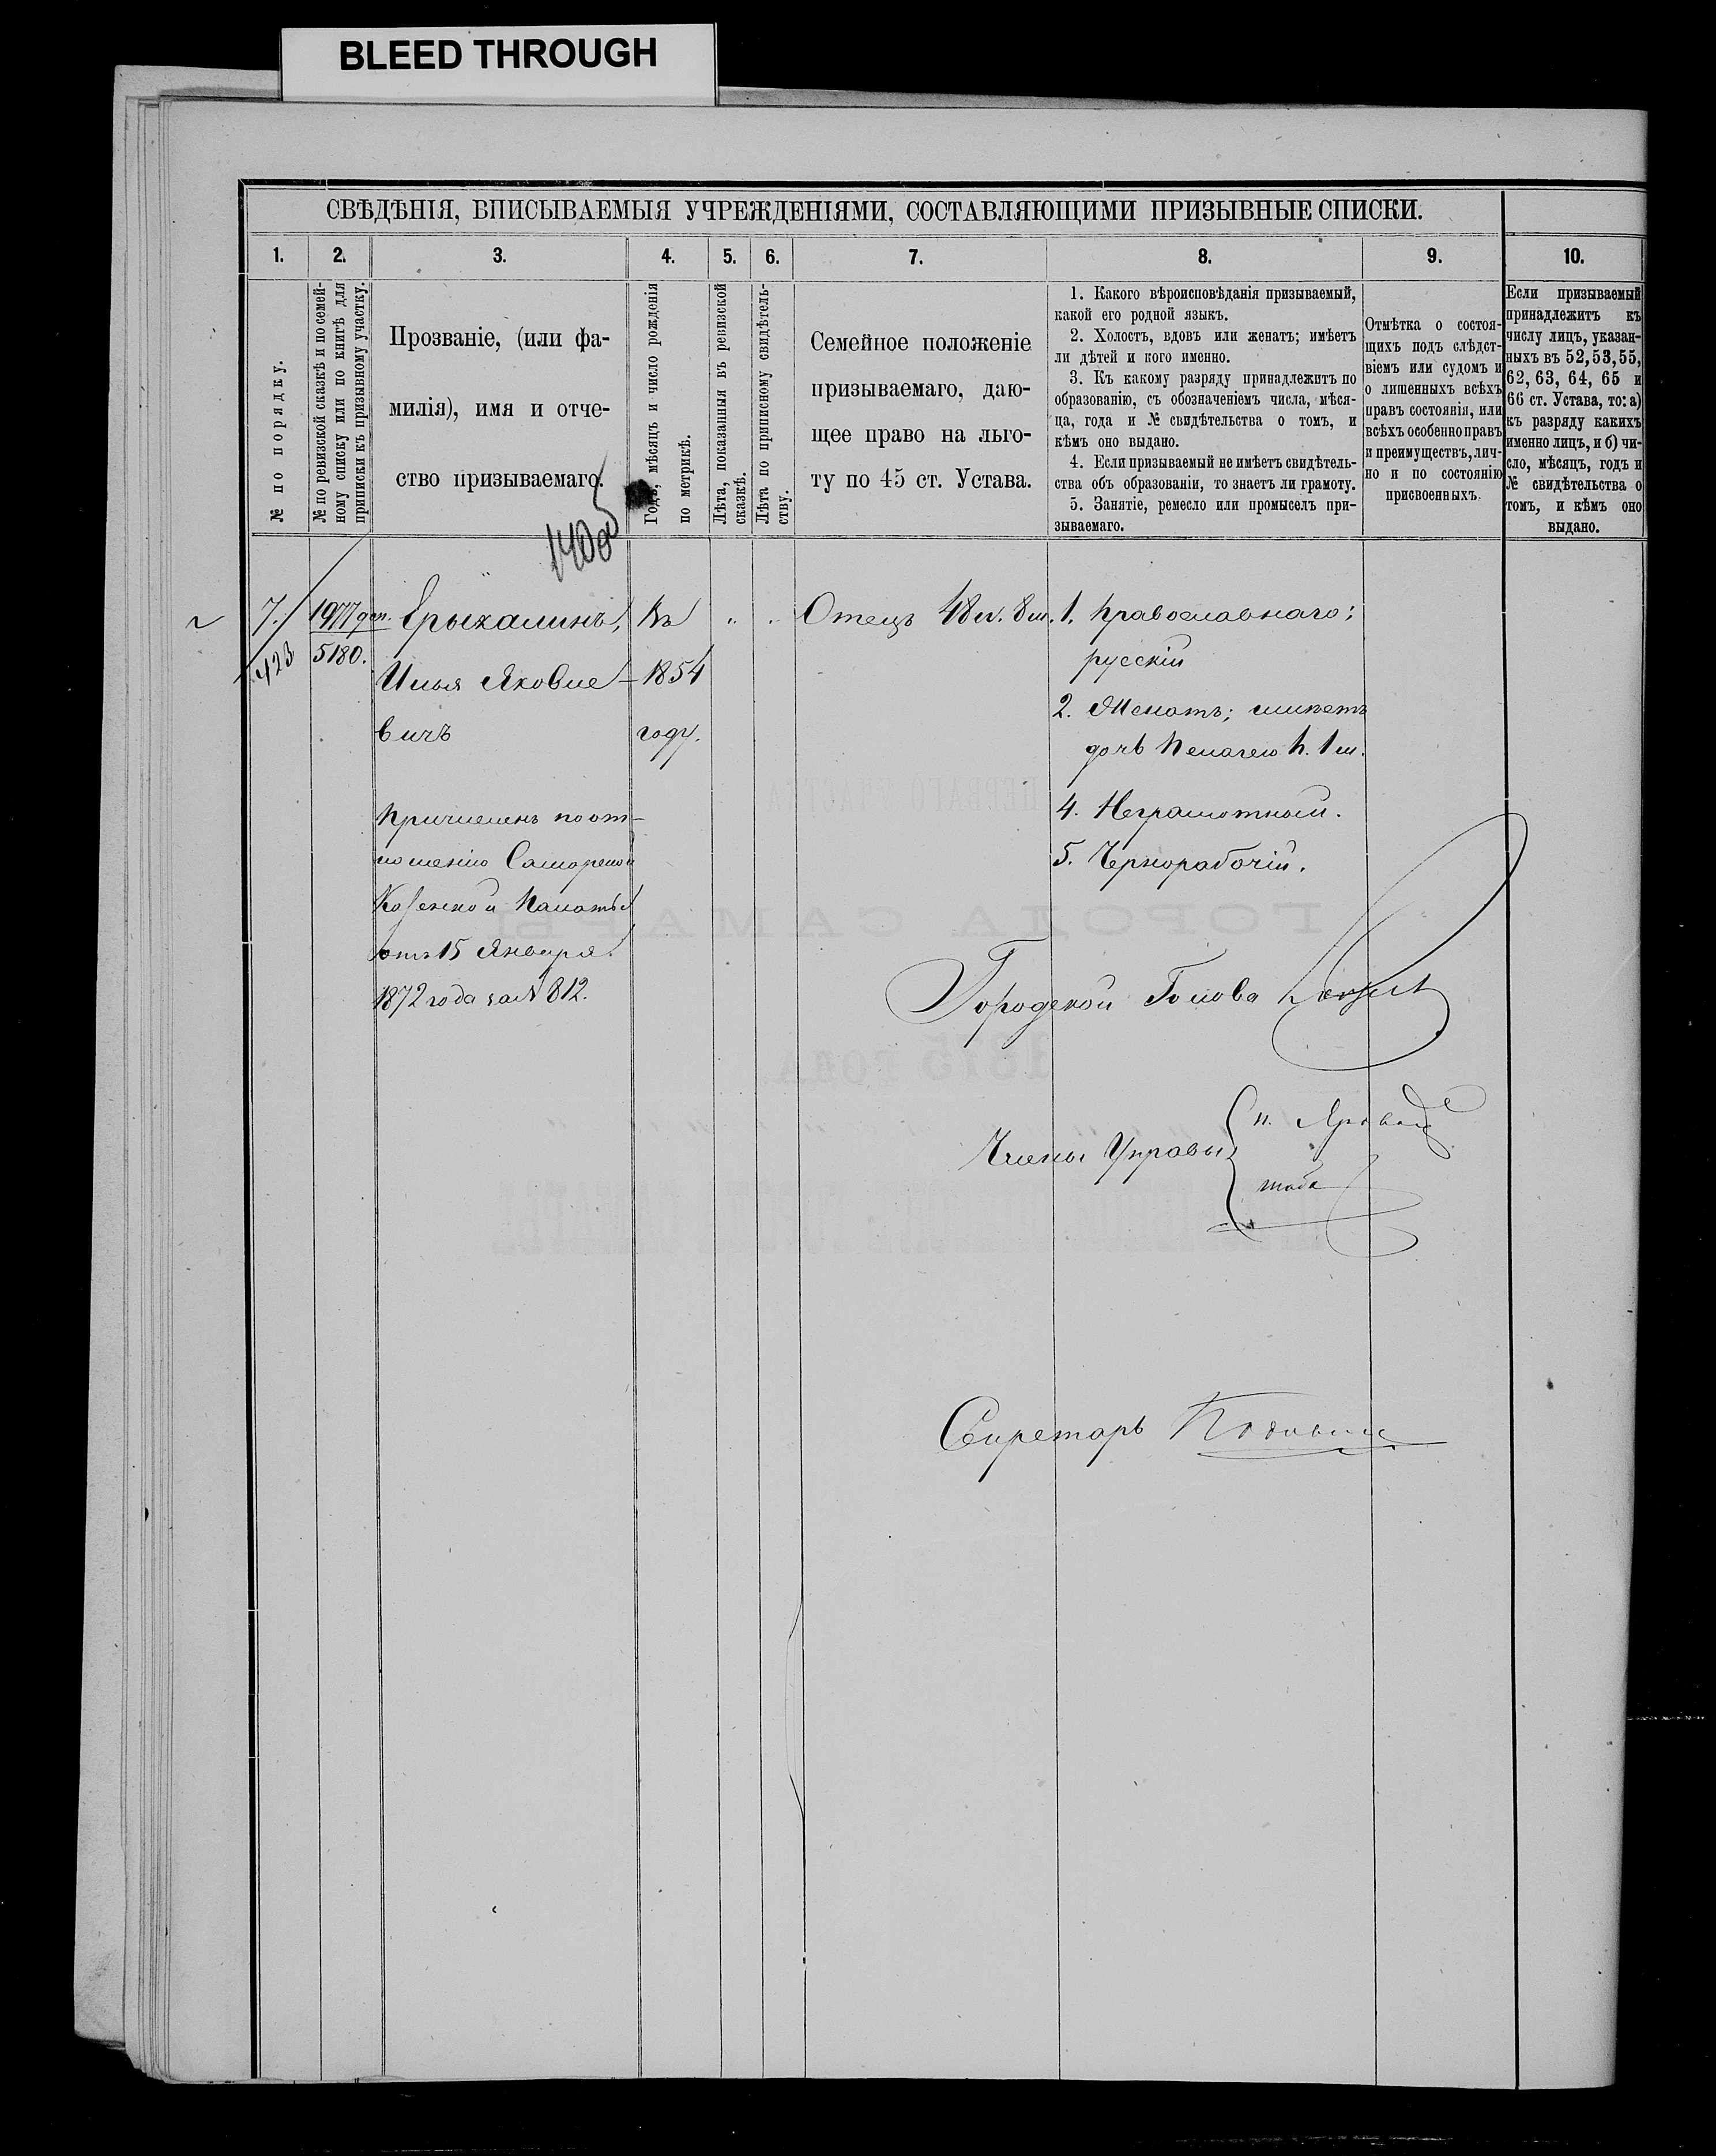 BLEED THROUGH
СВѢДѢНІЯ, ВПИСЫВАЕМЫЯ УЧРЕЖДЕНІЯМИ, СОСТАВЛЯЮЩИМИ ПРИЗЫВНЫЕ СПИСКИ.
1. 2. 3. 4. 5. 6. 7. 8. 9. 10.
№ по порядку.
№ по ревизской сказкѣ и по семей-
ному списку или по книгѣ для
приписки къ призывному участку.
Прозваніе, (или фа-
милія), имя и отче-
ство призываемаго.
Годъ, мѣсяцъ и число рожденія
по метрикѣ.
Лѣта, показанныя въ ревизской
сказкѣ.
Лѣта по приписному свидѣтель-
ству.
Семейное положеніе
призываемаго, даю-
щее право на льго-
ту по 45 ст. Устава.
1. Какого вѣроисповѣданія призываемый,
какой его родной языкъ.
2. Холостъ, вдовъ или женатъ; имѣетъ
ли дѣтей и кого именно.
3. Къ какому разряду принадлежитъ по
образованію, съ обозначеніемъ числа, мѣся-
ца, года и № свидѣтельства о томъ, и
кѣмъ оно выдано.
4. Если призываемый не имѣетъ свидѣтель-
ства объ образованіи, то знаетъ ли грамоту.
5. Занятіе, ремесло или промыселъ при-
зываемаго.
Отмѣтка о состоя-
щихъ подъ слѣдст-
віемъ или судомъ и
о лишенныхъ всѣхъ
правъ состоянія, или
всѣхъ особенно правъ
и преимуществъ, лич-
но и по состоянію
присвоенныхъ.
Если призываемый
принадлежитъ къ
числу лицъ, указан-
ныхъ въ 52, 53, 55,
62, 63, 64, 65 и
66 ст. Устава, то: а)
къ разряду какихъ
именно лицъ, и б) чи-
сло, мѣсяцъ, годъ и
№ свидѣтельства о
томъ, и кѣмъ оно
выдано.
7.
423
1977 доп.
5180.
Ерыкалинъ,
Илья Яковле-
вичъ
Причисленъ по от-
ношенію Самарской
Казенной Палаты
отъ 15 Января
1872 года за № 812.
Въ
1854
году.
Отецъ 48 л. 8 м.
1. Православнаго;
русскій
2. Женатъ; имѣетъ
дочь Пелагею
4. Неграмотный.
5. Чернорабочій.
Городской Голова
Члены Управы
Секретарь